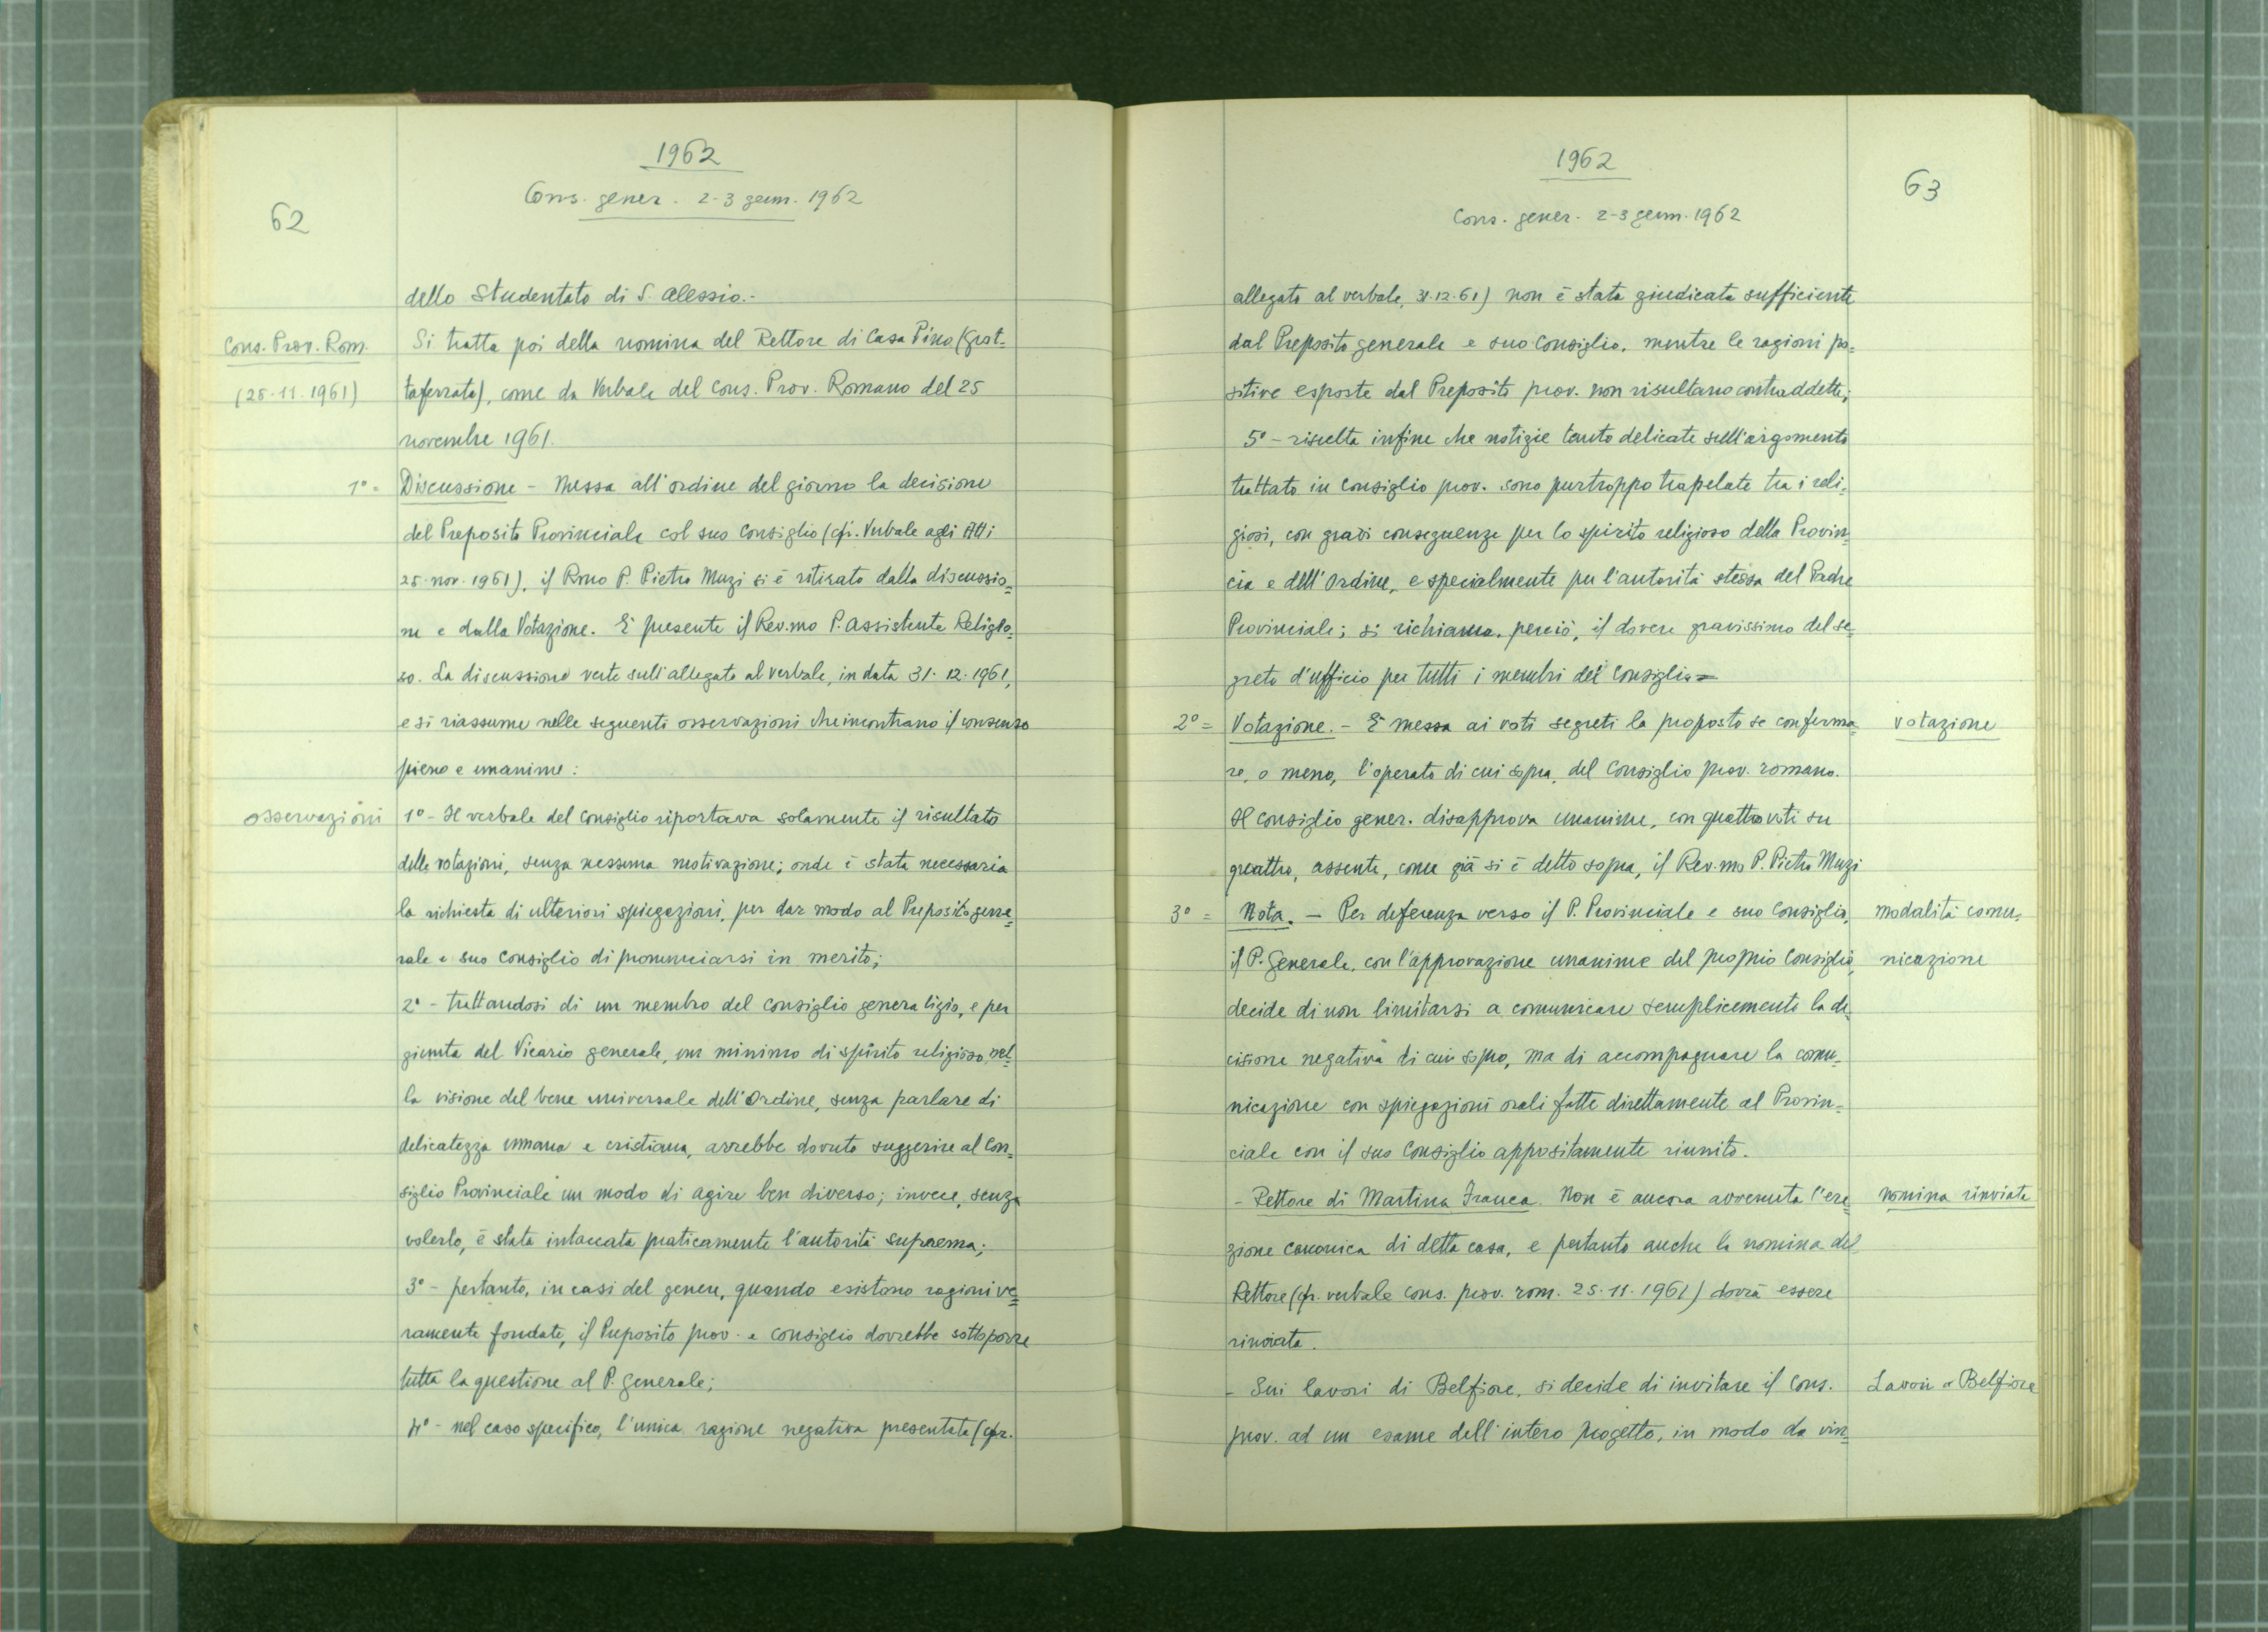 1962
Cons. gener. 2-3 genn. 1962
62
dello Studentato di S. Alessio.-
Cons. Prov. Rom.
Si tratta poi della nomina del Rettore di Casa Pino (Grot=
(25-11-1961)
taferrata), come da Verbale del Cons. Prov. Romano del 25
novembre 1961.
1° =
Discussione - Messa all'ordine del giorno la decisione
del Preposito Provinciale col suo Consiglio (cfr. Verbale agli Atti
25-nov. 1961), il Rmo P. Pietro Muzi si è ritirato dalla discussio=
ne e dalla Votazione. È presente il Rev.mo P. Assistente Religio=
so. La discussione verte sull'allegato al verbale, in data 31-12-1961,
e si riassume nelle seguenti osservazioni che incontrano il consenso
pieno e unanime:
osservazioni
1° - Il verbale del Consiglio riportava solamente il risultato
delle votazioni, senza nessuna motivazione; onde è stata necessaria
la richiesta di ulteriori spiegazioni, per dar modo al Preposito gene=
rale e suo Consiglio di pronunciarsi in merito;
2° - trattandosi di un membro del Consiglio generalizio, e per
giunta del Vicario generale, un minimo di spirito religioso, nel=
la visione del bene universale dell'Ordine, senza parlare di
delicatezza umana e cristiana, avrebbe dovuto suggerire al Con=
siglio Provinciale un modo di agire ben diverso; invece, senza
volerlo, è stata intaccata praticamente l'autorità suprema;
3° - pertanto, in casi del genere, quando esistono ragioni ve=
ramente fondate, il Preposito prov. e Consiglio dovrebbe sottoporre
tutta la questione al P. Generale;
4° - nel caso specifico, l'unica ragione negativa presentata (cfr.
1962
Cons. gener. 2-3 genn. 1962
63
allegato al verbale, 31.12.61) non è stata giudicata sufficiente
dal Preposito generale e suo Consiglio, mentre le ragioni po=
sitive esposte dal Preposito prov. non risultano contraddette;
5° - risulta infine che notizie tanto delicate sull'argomento
trattato in Consiglio prov. sono purtroppo trapelate tra i reli=
giosi, con gravi conseguenze per lo spirito religioso della Provin=
cia e dell'Ordine, e specialmente per l'autorità stessa del Padre
Provinciale; si richiama, perciò, il dovere gravissimo del se=
greto d'ufficio per tutti i membri del Consiglio=
2° =
Votazione. - È messa ai voti segreti la proposta se conferma=
votazione
re, o meno, l'operato di cui sopra, del Consiglio prov. romano.
Il Consiglio gener. disapprova unanime, con quattro voti su
quattro, assente, come già si è detto sopra, il Rev.mo P. Pietro Muzi
3° =
Nota. - Per deferenza verso il P. Provinciale e suo Consiglio,
modalità comu=
il P. Generale, con l'approvazione unanime del proprio Consiglio,
nicazione
decide di non limitarsi a comunicare semplicemente la de=
cisione negativa di cui sopra, ma di accompagnare la comu=
nicazione con spiegazioni orali fatte direttamente al Provin=
ciale con il suo Consiglio appositamente riunito.
- Rettore di Martina Franca. Non è ancora avvenuta l'ere=
nomina rinviata
zione canonica di detta casa, e pertanto anche la nomina del
Rettore (cfr. verbale cons. prov. rom. 25-11-1961) dovrà essere
rinviata.
- Sui lavori di Belfiore, si decide di invitare il Cons.
Lavori a Belfiore
prov. ad un esame dell'intero progetto, in modo da vin=